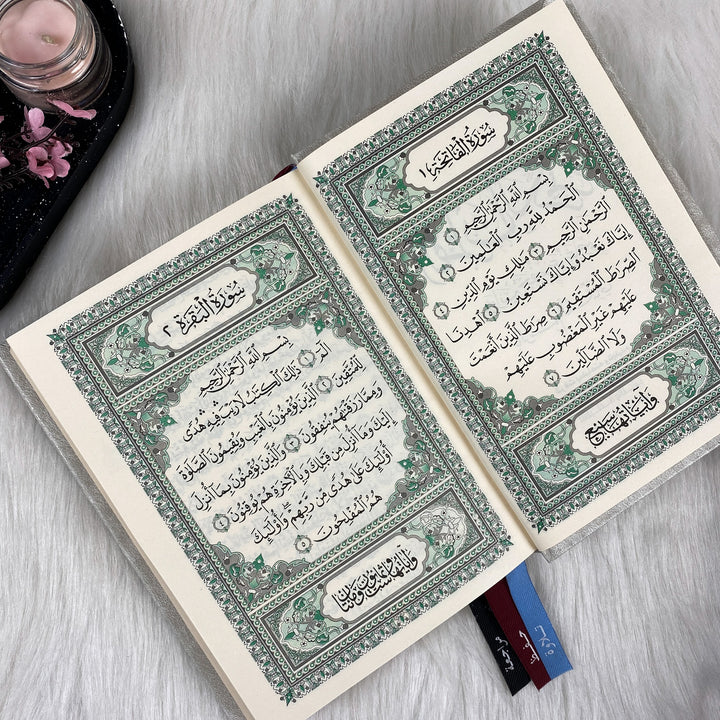 سُورَةُ الْفَاتِحَةِ ١
بِسْمِ ٱللَّهِ ٱلرَّحْمَٰنِ ٱلرَّحِيمِ ١
ٱلْحَمْدُ لِلَّهِ رَبِّ ٱلْعَٰلَمِينَ ٢
ٱلرَّحْمَٰنِ ٱلرَّحِيمِ ٣ مَٰلِكِ يَوْمِ ٱلدِّينِ ٤
إِيَّاكَ نَعْبُدُ وَإِيَّاكَ نَسْتَعِينُ ٥ ٱهْدِنَا
ٱلصِّرَٰطَ ٱلْمُسْتَقِيمَ ٦ صِرَٰطَ ٱلَّذِينَ أَنْعَمْتَ
عَلَيْهِمْ غَيْرِ ٱلْمَغْضُوبِ عَلَيْهِمْ
وَلَا ٱلضَّآلِّينَ ٧
وَآيَاتُهَا سَبْعٌ
سُورَةُ الْبَقَرَةِ ٢
بِسْمِ ٱللَّهِ ٱلرَّحْمَٰنِ ٱلرَّحِيمِ
الٓمٓ ١ ذَٰلِكَ ٱلْكِتَٰبُ لَا رَيْبَ فِيهِ هُدًى
لِّلْمُتَّقِينَ ٢ ٱلَّذِينَ يُؤْمِنُونَ بِٱلْغَيْبِ وَيُقِيمُونَ ٱلصَّلَوٰةَ
وَمِمَّا رَزَقْنَٰهُمْ يُنفِقُونَ ٣ وَٱلَّذِينَ يُؤْمِنُونَ بِمَآ أُنزِلَ
إِلَيْكَ وَمَآ أُنزِلَ مِن قَبْلِكَ وَبِٱلْءَاخِرَةِ هُمْ يُوقِنُونَ ٤
أُو۟لَٰٓئِكَ عَلَىٰ هُدًى مِّن رَّبِّهِمْ وَأُو۟لَٰٓئِكَ
هُمُ ٱلْمُفْلِحُونَ ٥
وَآيَاتُهَا سِتٌّ وَثَمَانُونَ وَمِائَتَانِ
مراجعة
حفظ
تلاوة